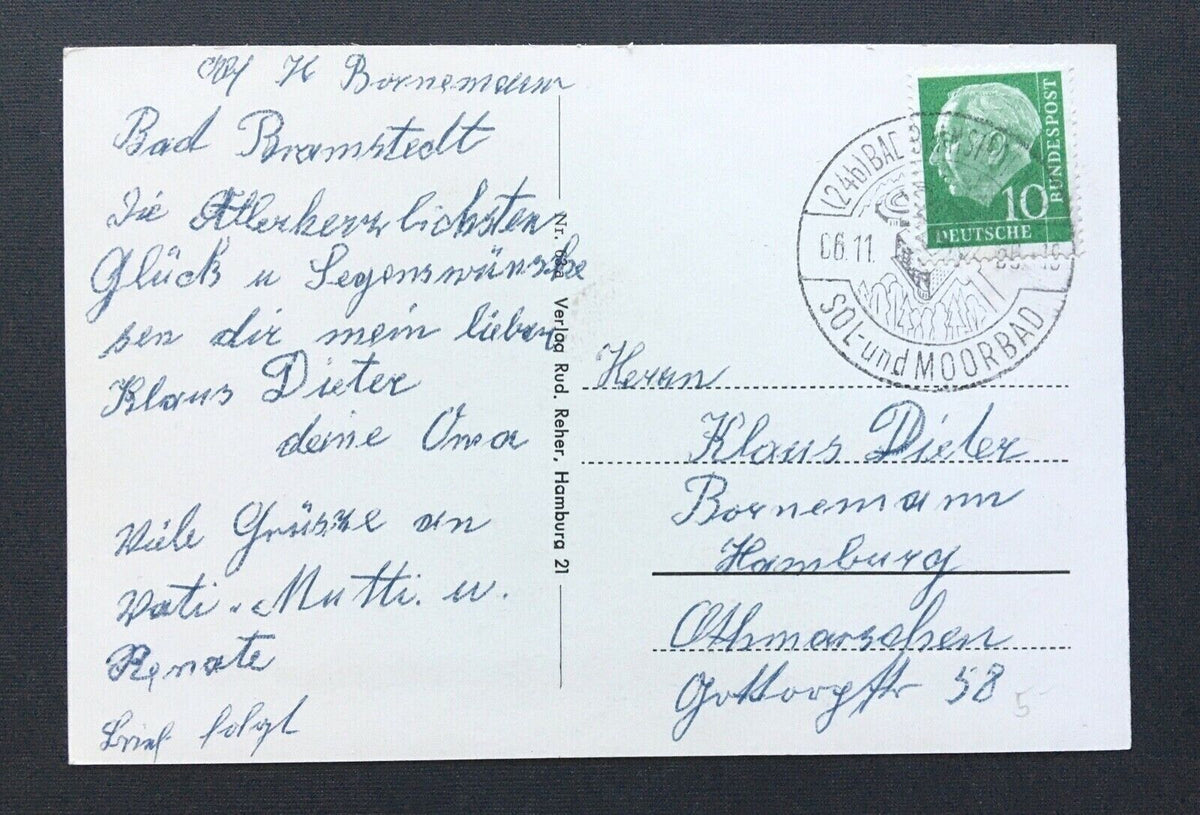 H Bornemann
Bad Bramstedt
Die Allerherzlichsten
Glück u Segenswünsche
sen dir mein lieber
Klaus Dieter
deine Oma
Viele Grüsse an
Vati. Mutti. u.
Renate
Brief folgt
Nr. Verlag Rud. Reher, Hamburg 21
10
DEUTSCHE
BUNDESPOST
(24b) BAD
06.11.
SOL- und MOORBAD
Herrn
Klaus Dieter
Bornemann
Hamburg
Othmarschen
Gottorpstr 58
5